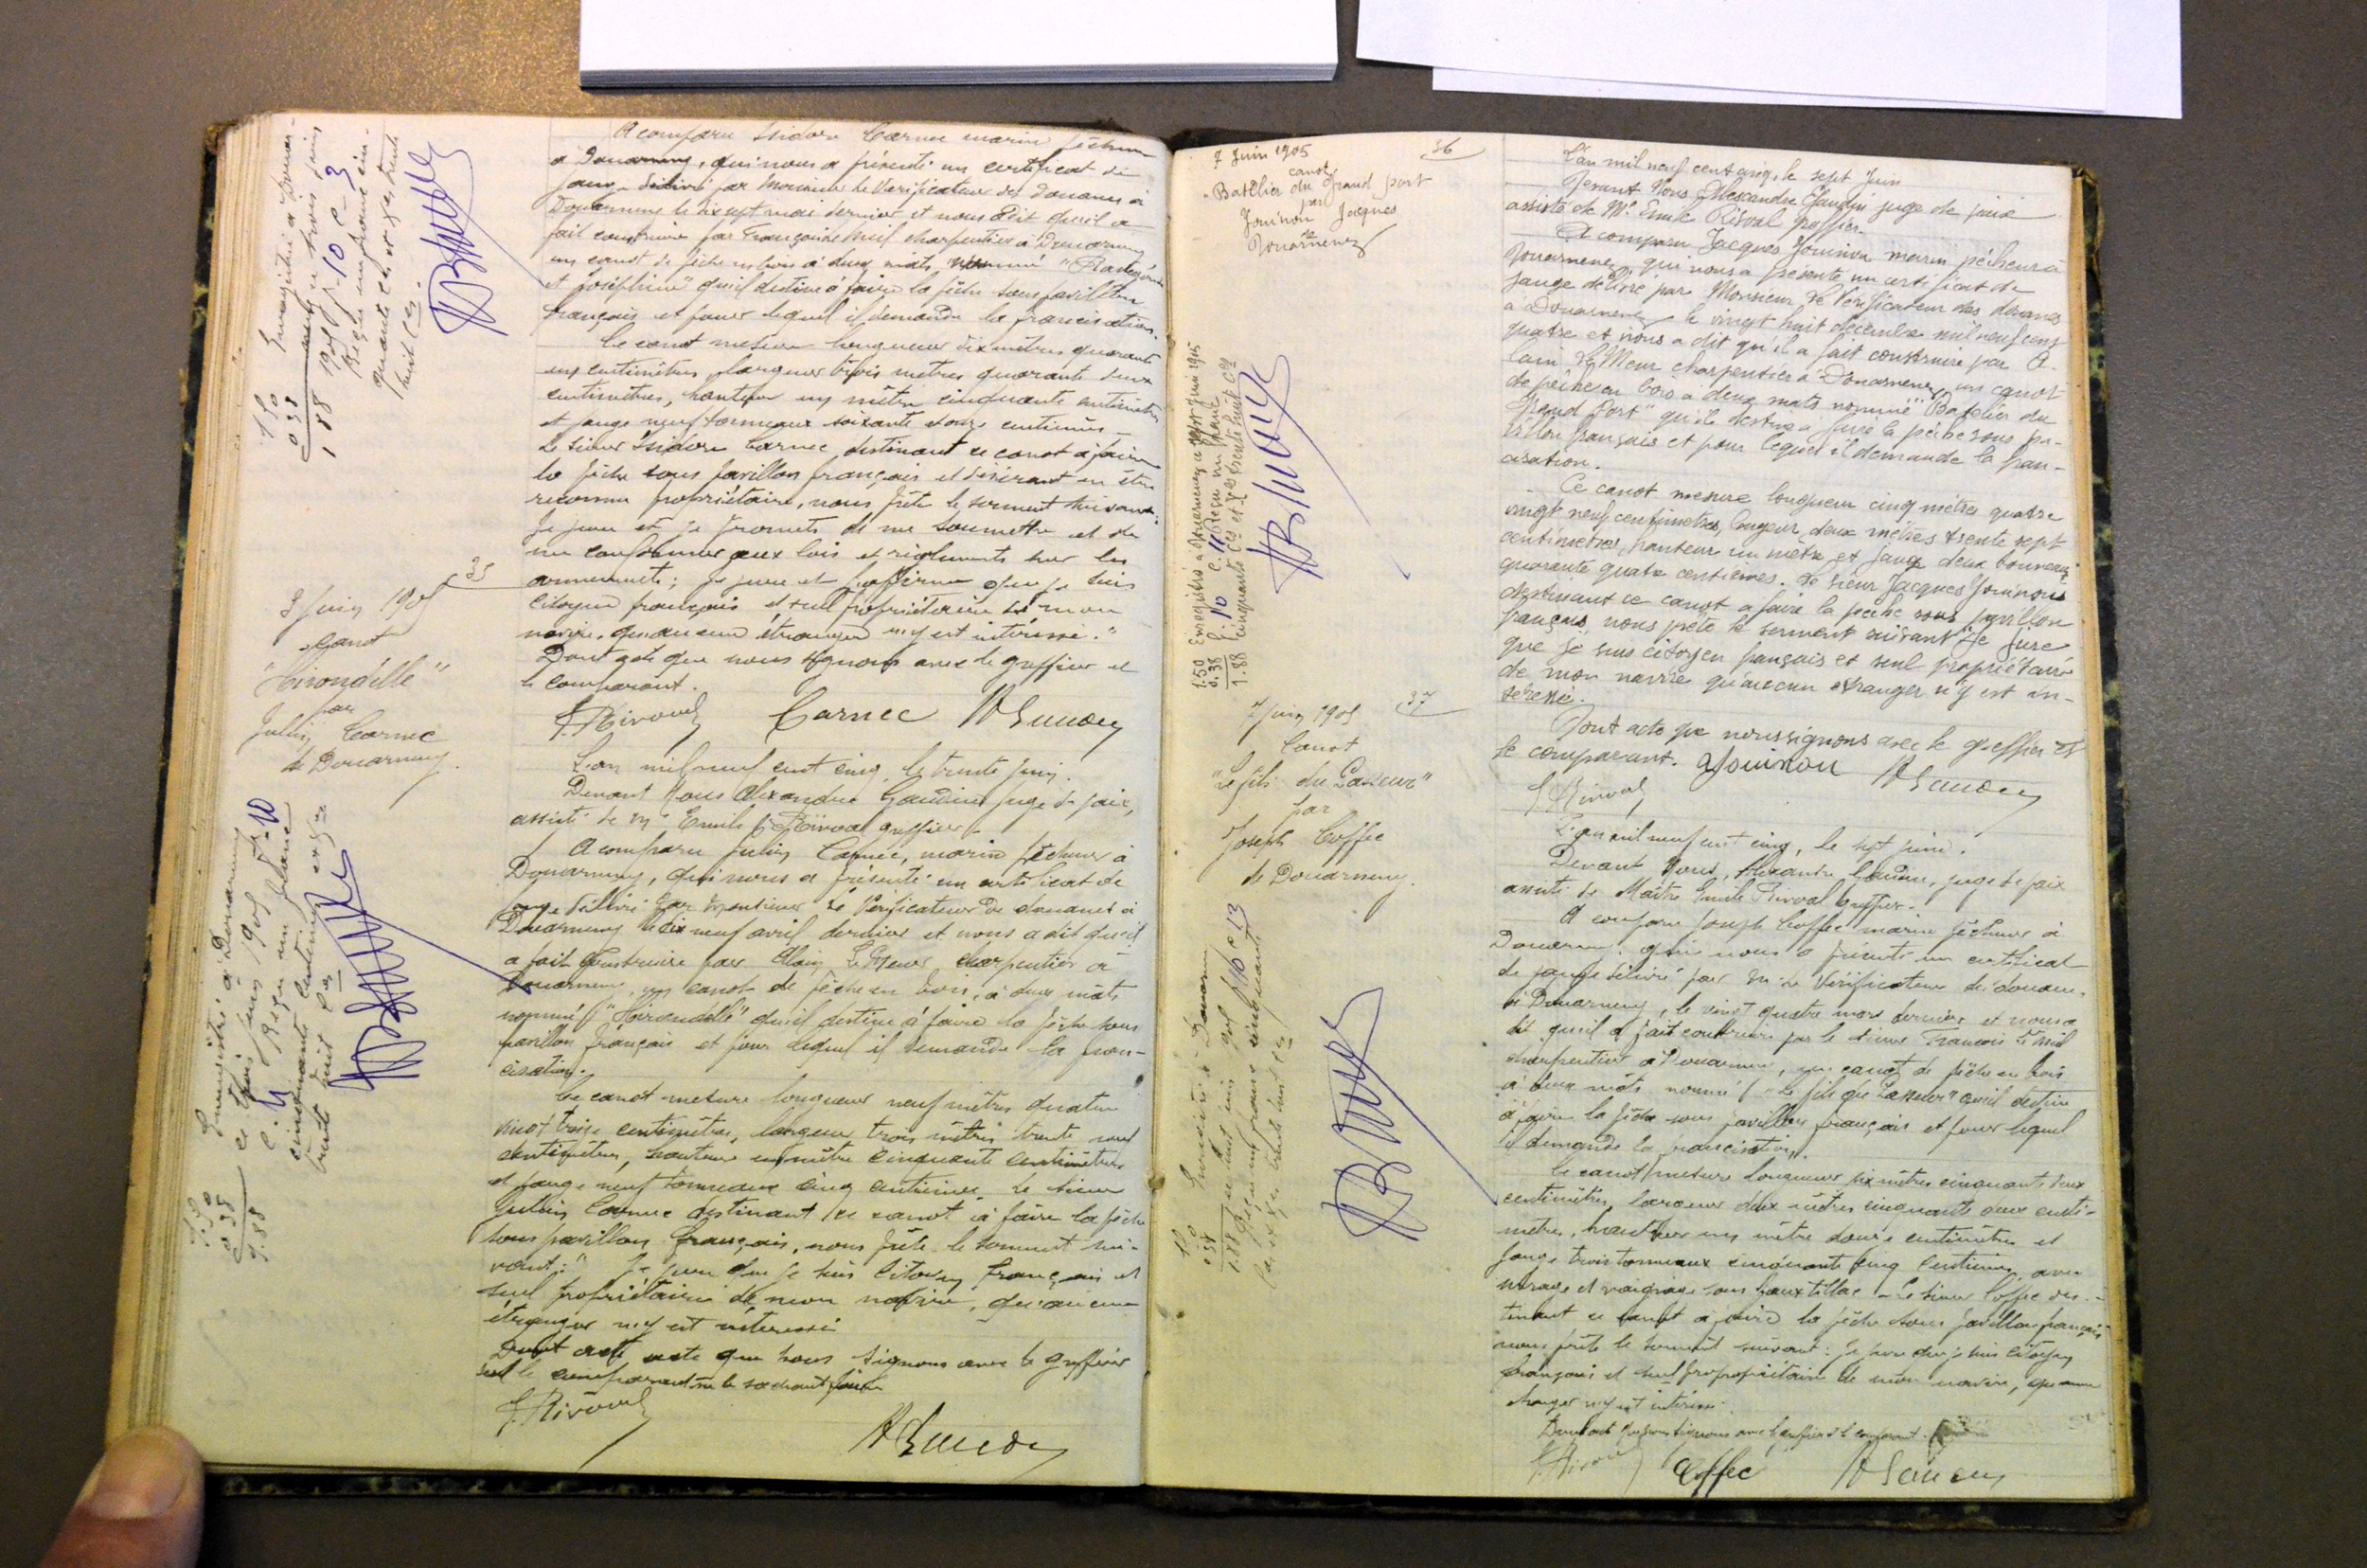 Enregistré à Douar-
nenez ce trois juin
1905 fo 10 c. 3
Reçu un franc cin-
quante ces et xes trente
huit ces.
1.50
0 38
1 88
A comparu Isidore Carnec marin pêcheur
à Douarnenez, qui nous a présenté un certificat de
jauge délivré par Monsieur le Vérificateur des Douanes à
Douarnenez le dix sept mai dernier et nous a dit qu'il a
fait construire par François charpentier à Douarnenez
un canot de pêche en bois à deux mats, nommé
et Joséphine" qu'il destine à faire la pêche sous pavillon
français et pour lequel il demande la francisation.
Ce canot mesure longueur dix mètres quarante
un centimètres, largeur trois mètres quarante deux
centimètres, hauteur un mètre cinquante centimètres
et jauge neuf tonneaux soixante douze centièmes.
Le sieur Isidore Carnec destinant ce canot à faire
la pêche sous pavillon français et désirant en être
reconnu propriétaire, nous prête le serment suivant:
Je jure et je promets de me soumettre et de
me conformer aux lois et règlements sur les
armements; je jure et j'affirme que je suis
citoyen français et seul propriétaire de mon
navire, qu'aucun étranger n'y est intéressé."
Dont acte que nous signons avec le greffier et
le comparant.
Carnec
35
3 juin 1905
Canot
"Hirondelle"
par
Julien Carnec
de Douarnenez.
Enregistré à Douarnenez
ce trois juin 1905 fo 10
c. 4 Reçu un franc
cinquante centimes et xes
trente huit ces
1.50
0 38
1.88
L'an mil neuf cent cinq, le trente juin.
Devant Nous Alexandre Gaudin juge de paix,
assisté de Me Emile Rivoal greffier.
A comparu Julien Carnec, marin pêcheur à
Douarnenez, qui nous a présenté un certificat de
jauge délivré par Monsieur le Vérificateur de douanes à
Douarnenez le dix neuf avril dernier et nous a dit qu'il
a fait construire par Alain Le Meur charpentier à
Douarnenez, un canot de pêche en bois, à deux mâts
nommé "Hirondelle" qu'il destine à faire la pêche sous
pavillon français et pour lequel il demande la fran-
cisation.
Ce canot mesure longueur neuf mètres quatre
vingt treize centimètres, largeur trois mètres trente neuf
centimètres, hauteur un mètre cinquante centimètres
et jauge neuf tonneaux cinq centièmes. Le sieur
Julien Carnec destinant ce canot à faire la pêche
sous pavillon français, nous prête le serment sui-
vant: "Je jure que je suis citoyen français et
seul propriétaire de mon navire, qu'aucun
étranger n'y est intéressé
Dont acte que nous signons avec le greffier
seul le comparant ne le sachant faire
7 Juin 1905
36
canot
"Batelier du Grand port
par
Jouinou Jacques
de
Douarnenez
Enregistré à Douarnenez ce sept juin 1905
fo 10 c. 11 Reçu un franc
cinquante ces et xes trente huit ces
1.50
0.38
1.88
L'an mil neuf cent cinq, le sept Juin
Devant Nous Alexandre Gaudin juge de paix
assisté de Me Emile Rivoal greffier.
A comparu Jacques Jouinou marin pêcheur à
Douarnenez qui nous a présenté un certificat de
jauge délivré par Monsieur le Vérificateur des douanes
à Douarnenez le vingt huit décembre mil neuf cent
quatre et nous a dit qu'il a fait construire par A-
lain Le Meur charpentier à Douarnenez un canot
de pêche en bois à deux mats nommé "Batelier du
Grand Port" qu'il destine à faire la pêche sous pa-
villon français et pour lequel il demande la fran-
cisation.
Ce canot mesure longueur cinq mètres quatre
vingt neuf centimètres, largeur deux mètres trente sept
centimètres, hauteur un mètre et jauge deux tonneaux
quarante quatre centièmes. Le sieur Jacques Jouinou
destinant ce canot à faire la pêche sous pavillon
français nous prête le serment suivant "Je jure
que je suis citoyen français et seul propriétaire
de mon navire qu'aucun étranger n'y est in-
téressé.
Dont acte que nous signons avec le greffier et
le comparant.
Jouinou
37
7 juin 1905
Canot
"Le fils du Passeur"
par
Joseph Coffec
de Douarnenez.
1.88
L'an mil neuf cent cinq, le sept juin.
Devant Nous, Alexandre Gaudin, juge de paix
assisté de Maître Emile Rivoal greffier.
A comparu Joseph Coffec marin pêcheur à
Douarnenez qui nous a présenté un certificat
de jauge délivré par Mr Le Vérificateur des douanes
à Douarnenez, le vingt quatre mars dernier et nous a
dit qu'il a fait construire par le sieur François
charpentier à Douarnenez, un canot de pêche en bois
à deux mâts nommé "Le fils du Passeur" qu'il destine
à faire la pêche sous pavillon français et pour lequel
il demande la francisation.
Ce canot mesure longueur six mètres cinquante deux
centimètres, largeur deux mètres cinquante deux centi-
mètres, hauteur un mètre douze centimètres et
jauge trois tonneaux cinquante cinq centièmes, avec
virage et vaigrage sans faux tillac. Le sieur Coffec des-
tinant ce canot à faire la pêche sous pavillon français
nous prête le serment suivant: Je jure que je suis citoyen
français et seul propriétaire de mon navire, qu'aucun
étranger n'y est intéressé.
Dont acte que nous signons avec le greffier et le comparant.
Coffec